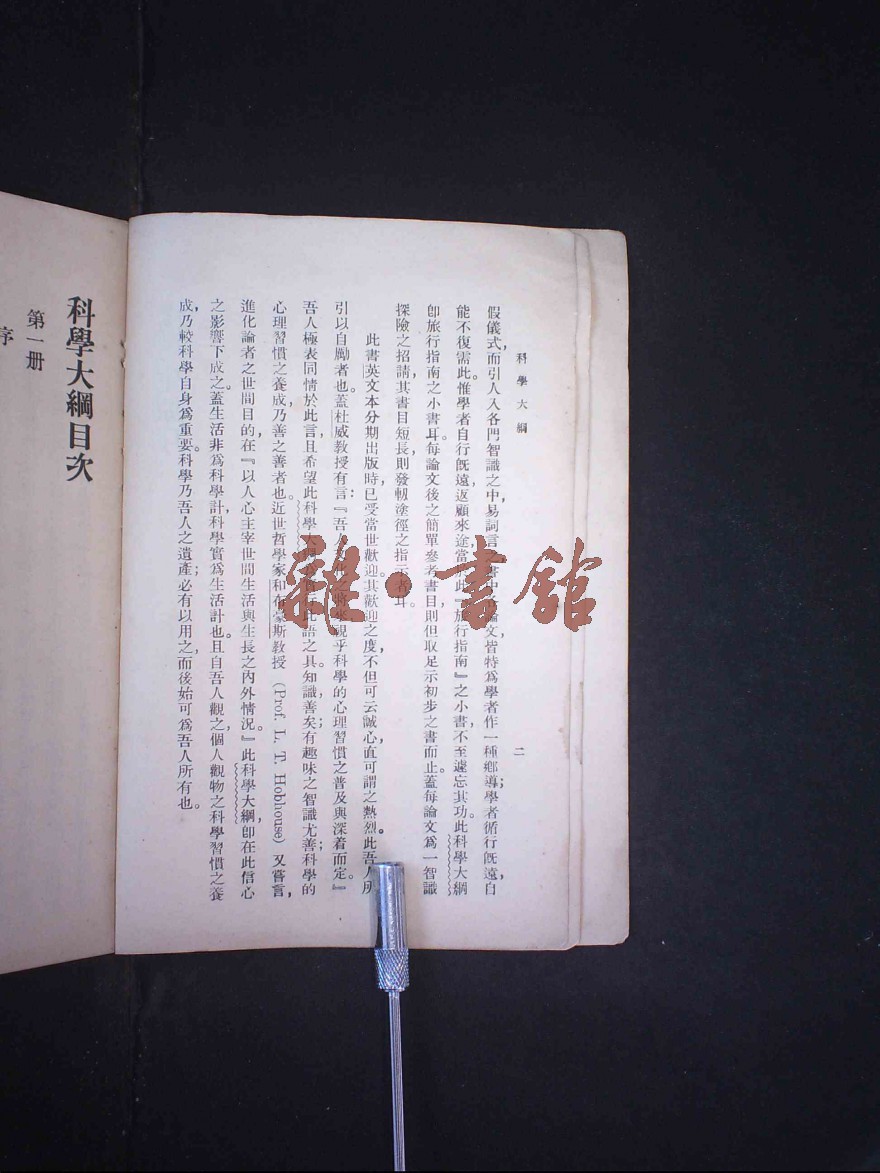 科學大綱
二
假儀式，而引人入各門智識之中，易詞言之，書中論文皆特爲學者作一種鄕導；學者循行旣遠，自
能不復需此。惟學者自行旣遠，返顧來途當於此『旅行指南』之小書，不至遽忘其功。此科學大綱
卽旅行指南之小書耳。每論文後之簡單參考書目，則但取足示初步之書而止。蓋每論文爲一智識
探險之招請，其書目短長，則發軔塗徑之指示者耳。
此書英文本分期出版時，已受當世歡迎。其歡迎之度，不但可云誠心，直可謂之熱烈。此吾人所
引以自勵者也。蓋杜威教授有言：『吾人文化之將來，視乎科學的心理習慣之普及與深着而定。』
吾人極表同情於此言，且希望此科學大綱爲實行此語之具。知識善矣；有趣味之智識尤善；科學的
心理習慣之養成，乃善之善者也。近世哲學家和布蒙斯教授（Prof. L. T. Hobhouse）又嘗言，
進化論者之世間目的，在『以人心主宰世間生活與生長之內外情況。』此科學大綱，卽在此信心
之影響下成之。蓋生活非爲科學計，科學實爲生活計也。且自吾人觀之，個人觀物之科學習慣之養
成，乃較科學自身爲重要。科學乃吾人之遺產；必有以用之，而後始可爲吾人所有也。
科學大綱目次
第一册
序
雜·書館